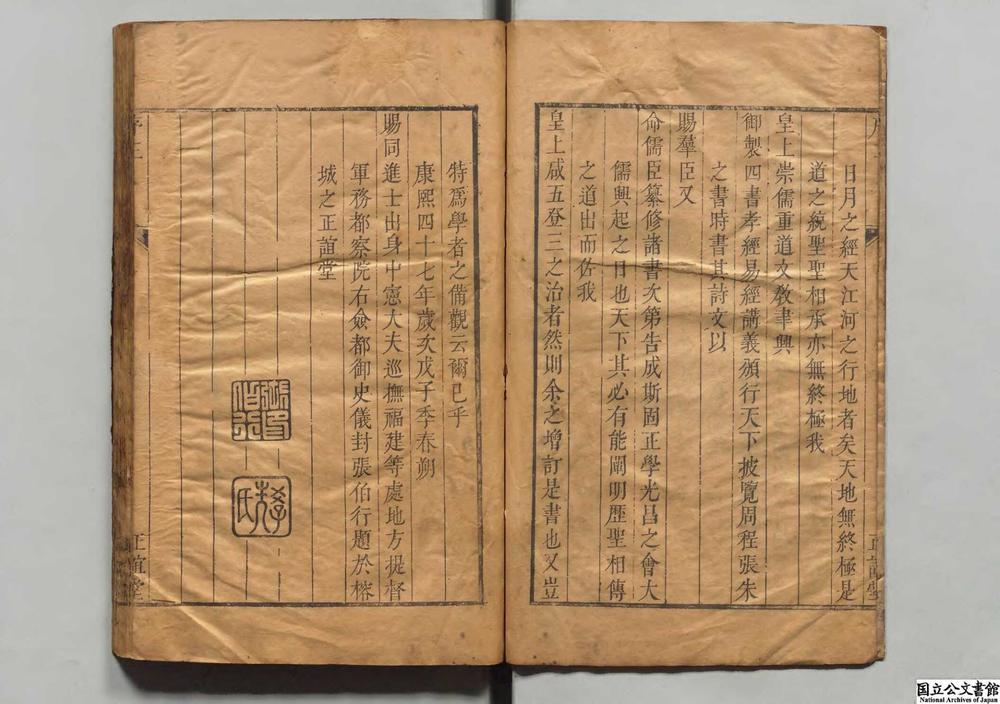 日月之經天江河之行地者矣天地無終極是
道之統聖聖相承亦無終極我
皇上崇儒重道文敎聿興
御製四書孝經易經講義頒行天下披覽周程張朱
之書時書其詩文以
賜羣臣又
命儒臣纂修諸書次第告成斯固正學光昌之會大
儒興起之日也天下其必有能闡明歷聖相傳
之道出而佐我
皇上咸五登三之治者然則余之增訂是書也又豈
正誼堂
特爲學者之備觀云爾已乎
康熙四十七年歲次戊子季春朔
賜同進士出身中憲大夫巡撫福建等處地方提督
軍務都察院右僉都御史儀封張伯行題於榕
城之正誼堂
張伯行印
孝先氏
正誼堂
国立公文書館
National Archives of Japan